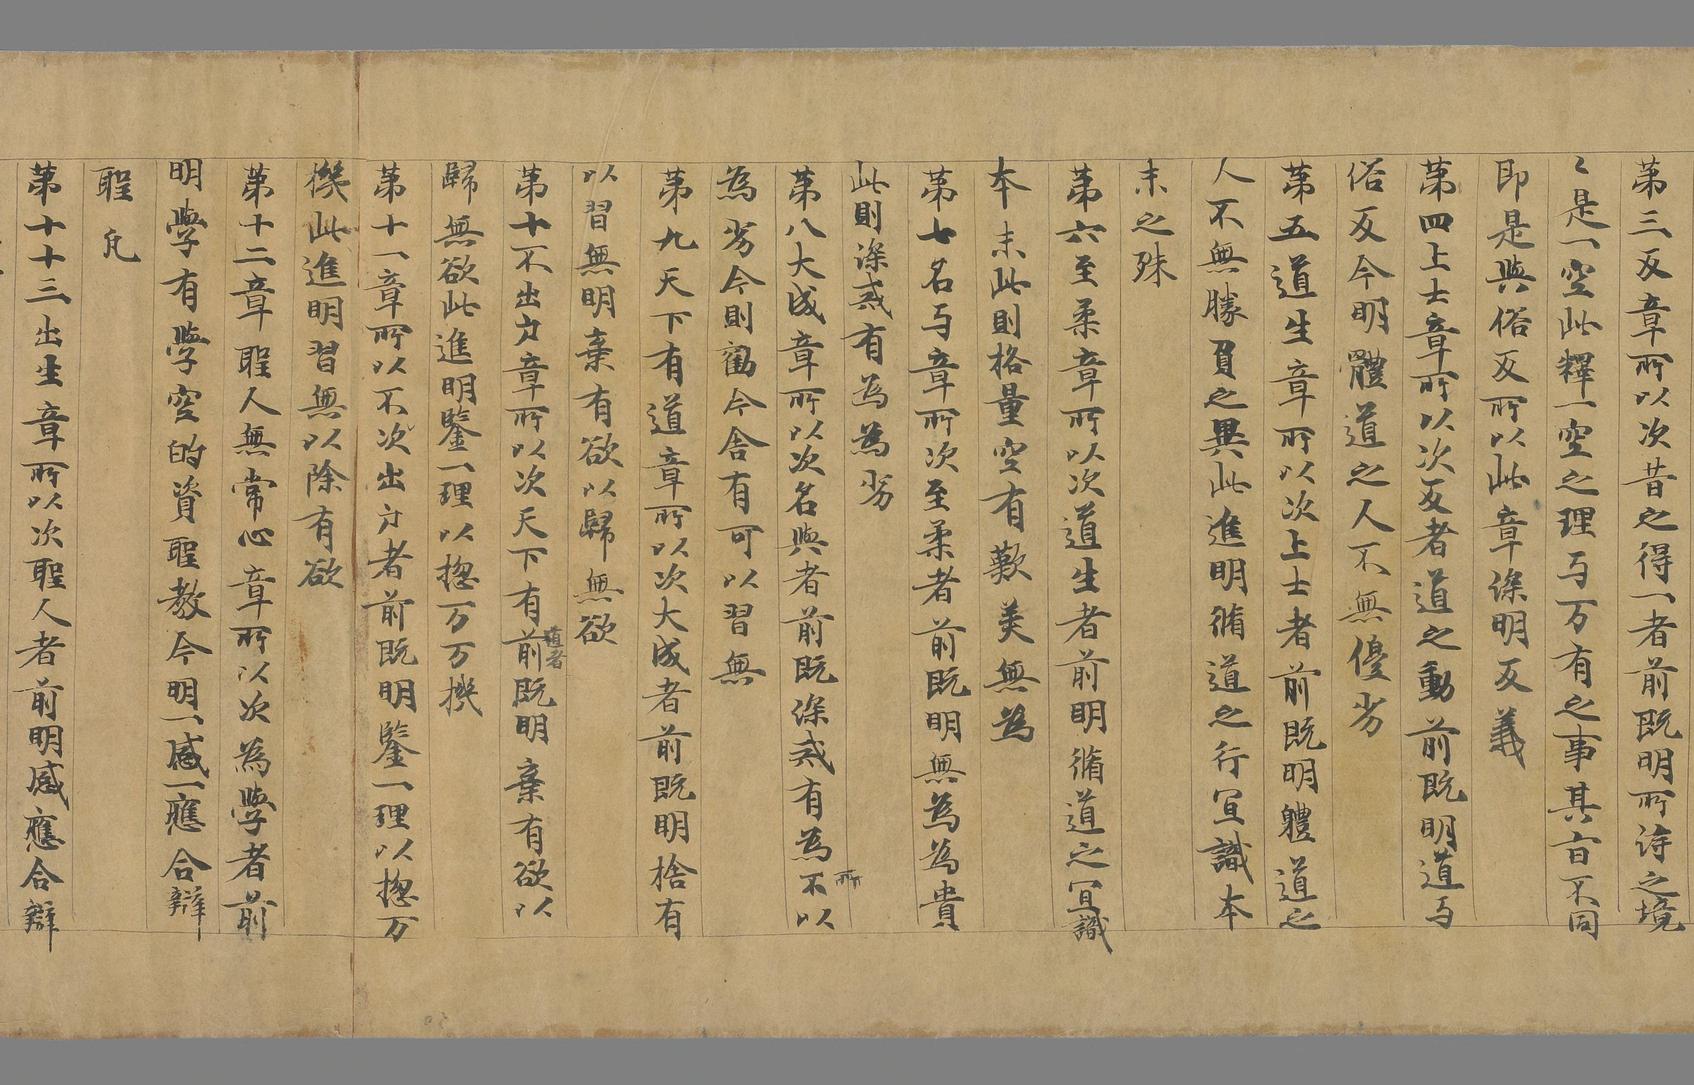 第三反章所以次昔之得一者前既明所詩之境
〻是一空此釋一空之理与万有之事其旨不同
即是與俗反所以此章深明反義
第四上士章所以次反者道之動前既明道与
俗反今明體道之人不無優劣
第五道生章所以次上士者前既明軆道之
人不無勝負之異此進明脩道之行冝識本
末之殊
第六至柔章所以次道生者前明脩道之冝識
本末此則格量空有歎美無為
第七名与章所次至柔者前既明無為為貴
此則深戒有為為劣
第八大成章所以次名與者前既深戒有為不以
所
為劣今則勸今舍有可以習無
第九天下有道章所以次大成者前既明捨有
以習無明棄有欲以歸無欲
第十不出方章所以次天下有前既明棄有欲以
道者
歸無欲此進明鑒一理以揔万万機
第十一章所以不次出方者前既明鑒一理以揔万
機此進明習無以除有欲
第十二章聖人無常心章所以次為學者前
明學有學空的資聖教今明一感一應合辯
聖凡
第十十三出生章所以次聖人者前明感應合辯